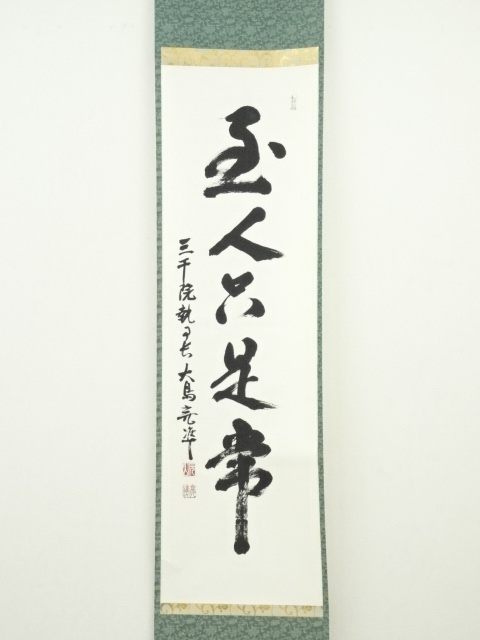 至人只是常
三千院執事長大島亮準